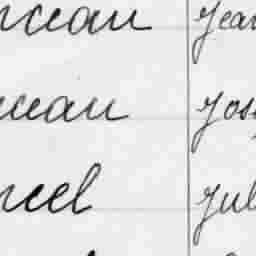 rceau Jean
ceau Jos
rcel Jul